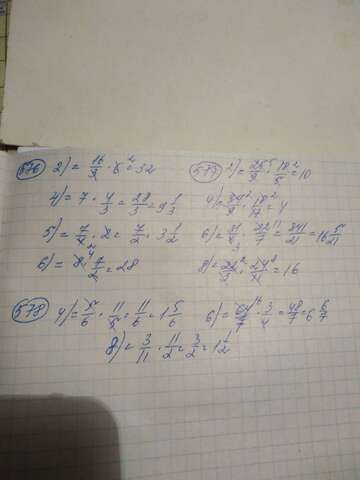 576 2) = 16/3 · 6² = 32
4) = 7 · 4/3 = 28/3 = 9 1/3
5) = 7/4 · 2 = 7/2 · 3 1/2
6) = 8⁴ · 7/2 = 28
577 2) = 25⁵/9 · 18²/5 = 10
4) = 34²/9 · 18²/17 = 4
6) = 31/3 · 22¹¹/7 = 341/21 = 16 5/21
8) = 22²/3 · 24⁸/11 = 16
578 4) = 5/6 · 11/5 = 11/6 = 1 5/6
6) = 64¹⁶/7 · 3/4 = 48/7 = 6 6/7
8) = 3/11 · 11/2 = 3/2 = 1 1/2